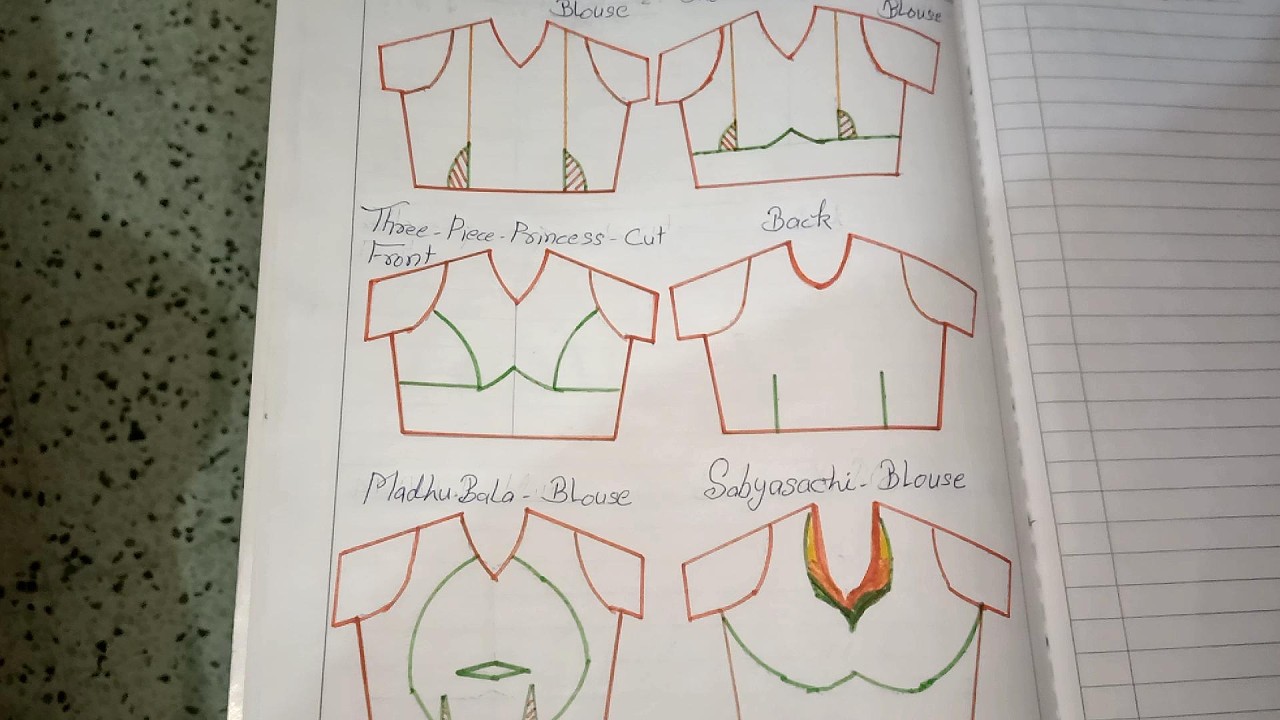 Blouse
Blouse
Three-Piece-Princess-Cut
Front
Back
Madhu-Bala-Blouse
Sabyasachi-Blouse